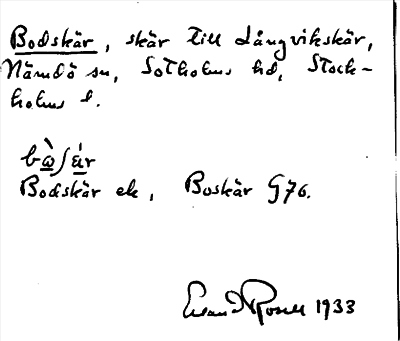 Bodskär, skär till Långvikskär,
Nämdö sn, Sotholms hd, Stock-
holms l.
bὼʃæ̀r
Bodskär ek, Boskär G76.
Evan d Rosell 1933